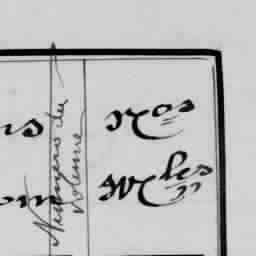 ns
om
Numéro du
Volume
Nos
Mles